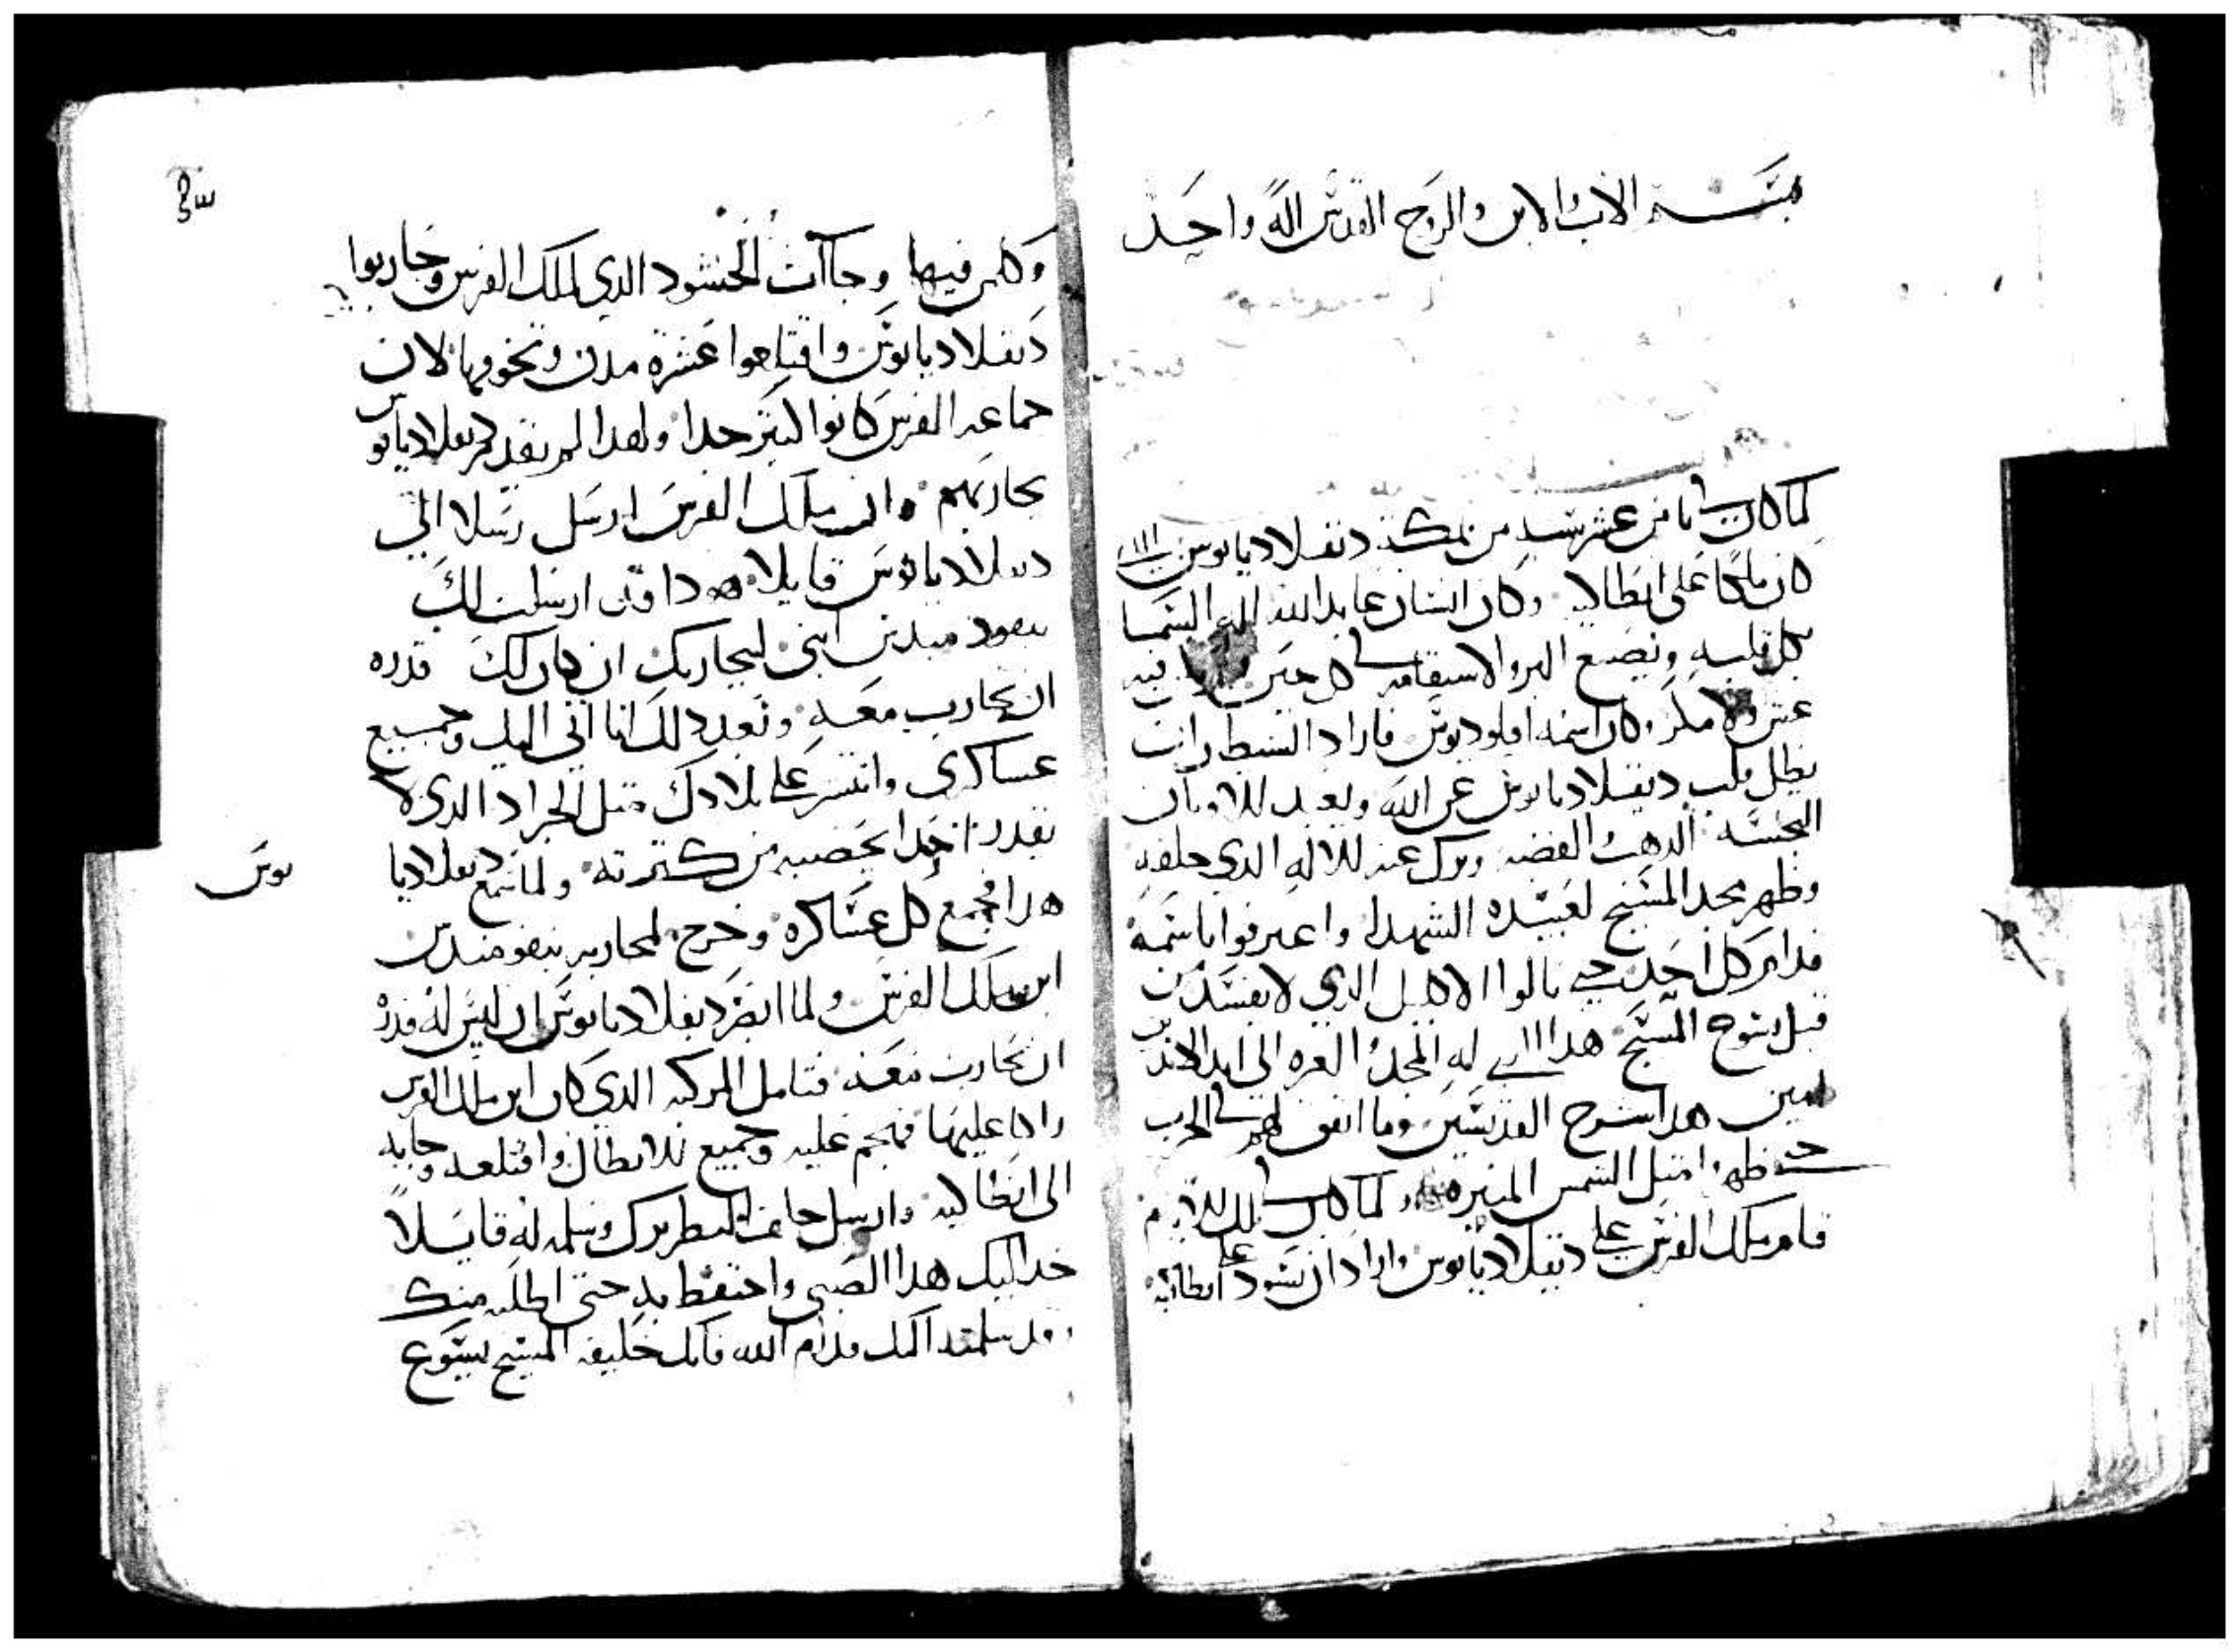 بسم الاب والابن والروح القدس اله واحد
لما كان ثامن عشر سنه من مملكة دقلاديانوس
كان ملكا على انطاكيه وكان انسان عابد الله اله السما
بكل قلبه ويصنع البر والاستقامه كل حين فيه
غش ولا مكر وكان اسمه اقلوديوس فاراد الشيطان
يظل قلب ديقلاديانوس عن الله ويعبد للاوتان
النجسه الدهب والفضه وترك عنه للاله الدي خلقه
وظهر مجد المسيح لعبيده الشهدا واعترفوا باسمه
قدام كل احد حتى نالوا الاكليل الدي لا يفسد من
قبل يسوع المسيح هدا الدي له المجد والعزه الى ابد الابدين
امين هدا شرح القديسين وما اتفق لهم الحرب
حتى ظهروا متل الشمس المنيره لما كان
قام ملك الفرس على ديقلاديانوس واراد ان يسود على انطاكيه
وكلمن فيها وجاات الحشود الدي لملك الفرس وحاربوا
دقلاديانوس واقتلعوا عشرة مدن وتخومها لان
جماعه الفرس كانوا كتير جدا ولهدا لم يقدر دقلاديانوس
يحاربهم وان ملك الفرس ارسل رسلا الي
دقلاديانوس قايلا هودا قد ارسلت لك
نيقوميدس ابني ليحاربك ان كان لك قدره
ان تحارب معه وبعد دلك انا اتي اليك وجميع
عساكري وانتشر على بلادك متل الجراد الدي لا
يقدر احدا يحصيه من كترته ولما سمع دقلاديانوس
هدا فجمع كل عساكره وخرج لمحاربه نيقوميدس
ابن ملك الفرس ولما ابصر ديقلاديانوس ان ليس له قدره
ان يحارب معه فتامل المركبه الدي كان ابن ملك الفرس
راكبا عليها فهجم عليه وجميع الابطال واقتلعه وجابه
الى انطاكيه وارسل خلف البطريرك وسلمه له قايلا
خد اليك هدا الصبي واحتفظ به حتى اطلبه منك
وقد سلمته اليك قدام الله فانك خليفه المسيح يسوع